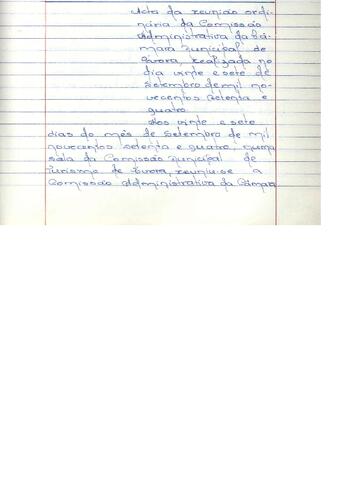 Acta da reunião ordi-
nária da Comissão
Administrativa da Câ-
mara Municipal de
Évora, realizada no
dia vinte e sete de
Setembro de mil no-
vecentos setenta e
quatro
Aos vinte e sete
dias do mês de Setembro de mil
novecentos setenta e quatro, numa
sala da Comissão Municipal de
Turismo de Évora, reuniu-se a
Comissão Administrativa da Câmara